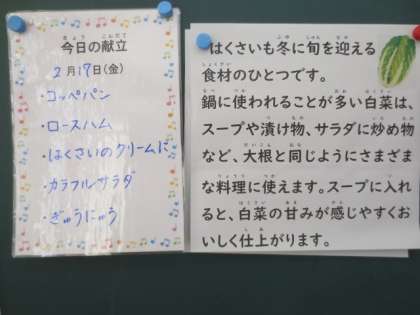 今日の献立
2月17日(金)
・コッペパン
・ロースハム
・はくさいのクリームに
・カラフルサラダ
・ぎゅうにゅう
はくさいも冬に旬を迎える
食材のひとつです。
鍋に使われることが多い白菜は、
スープや漬け物、サラダに炒め物
など、大根と同じようにさまざま
な料理に使えます。スープに入れ
ると、白菜の甘みが感じやすくお
いしく仕上がります。